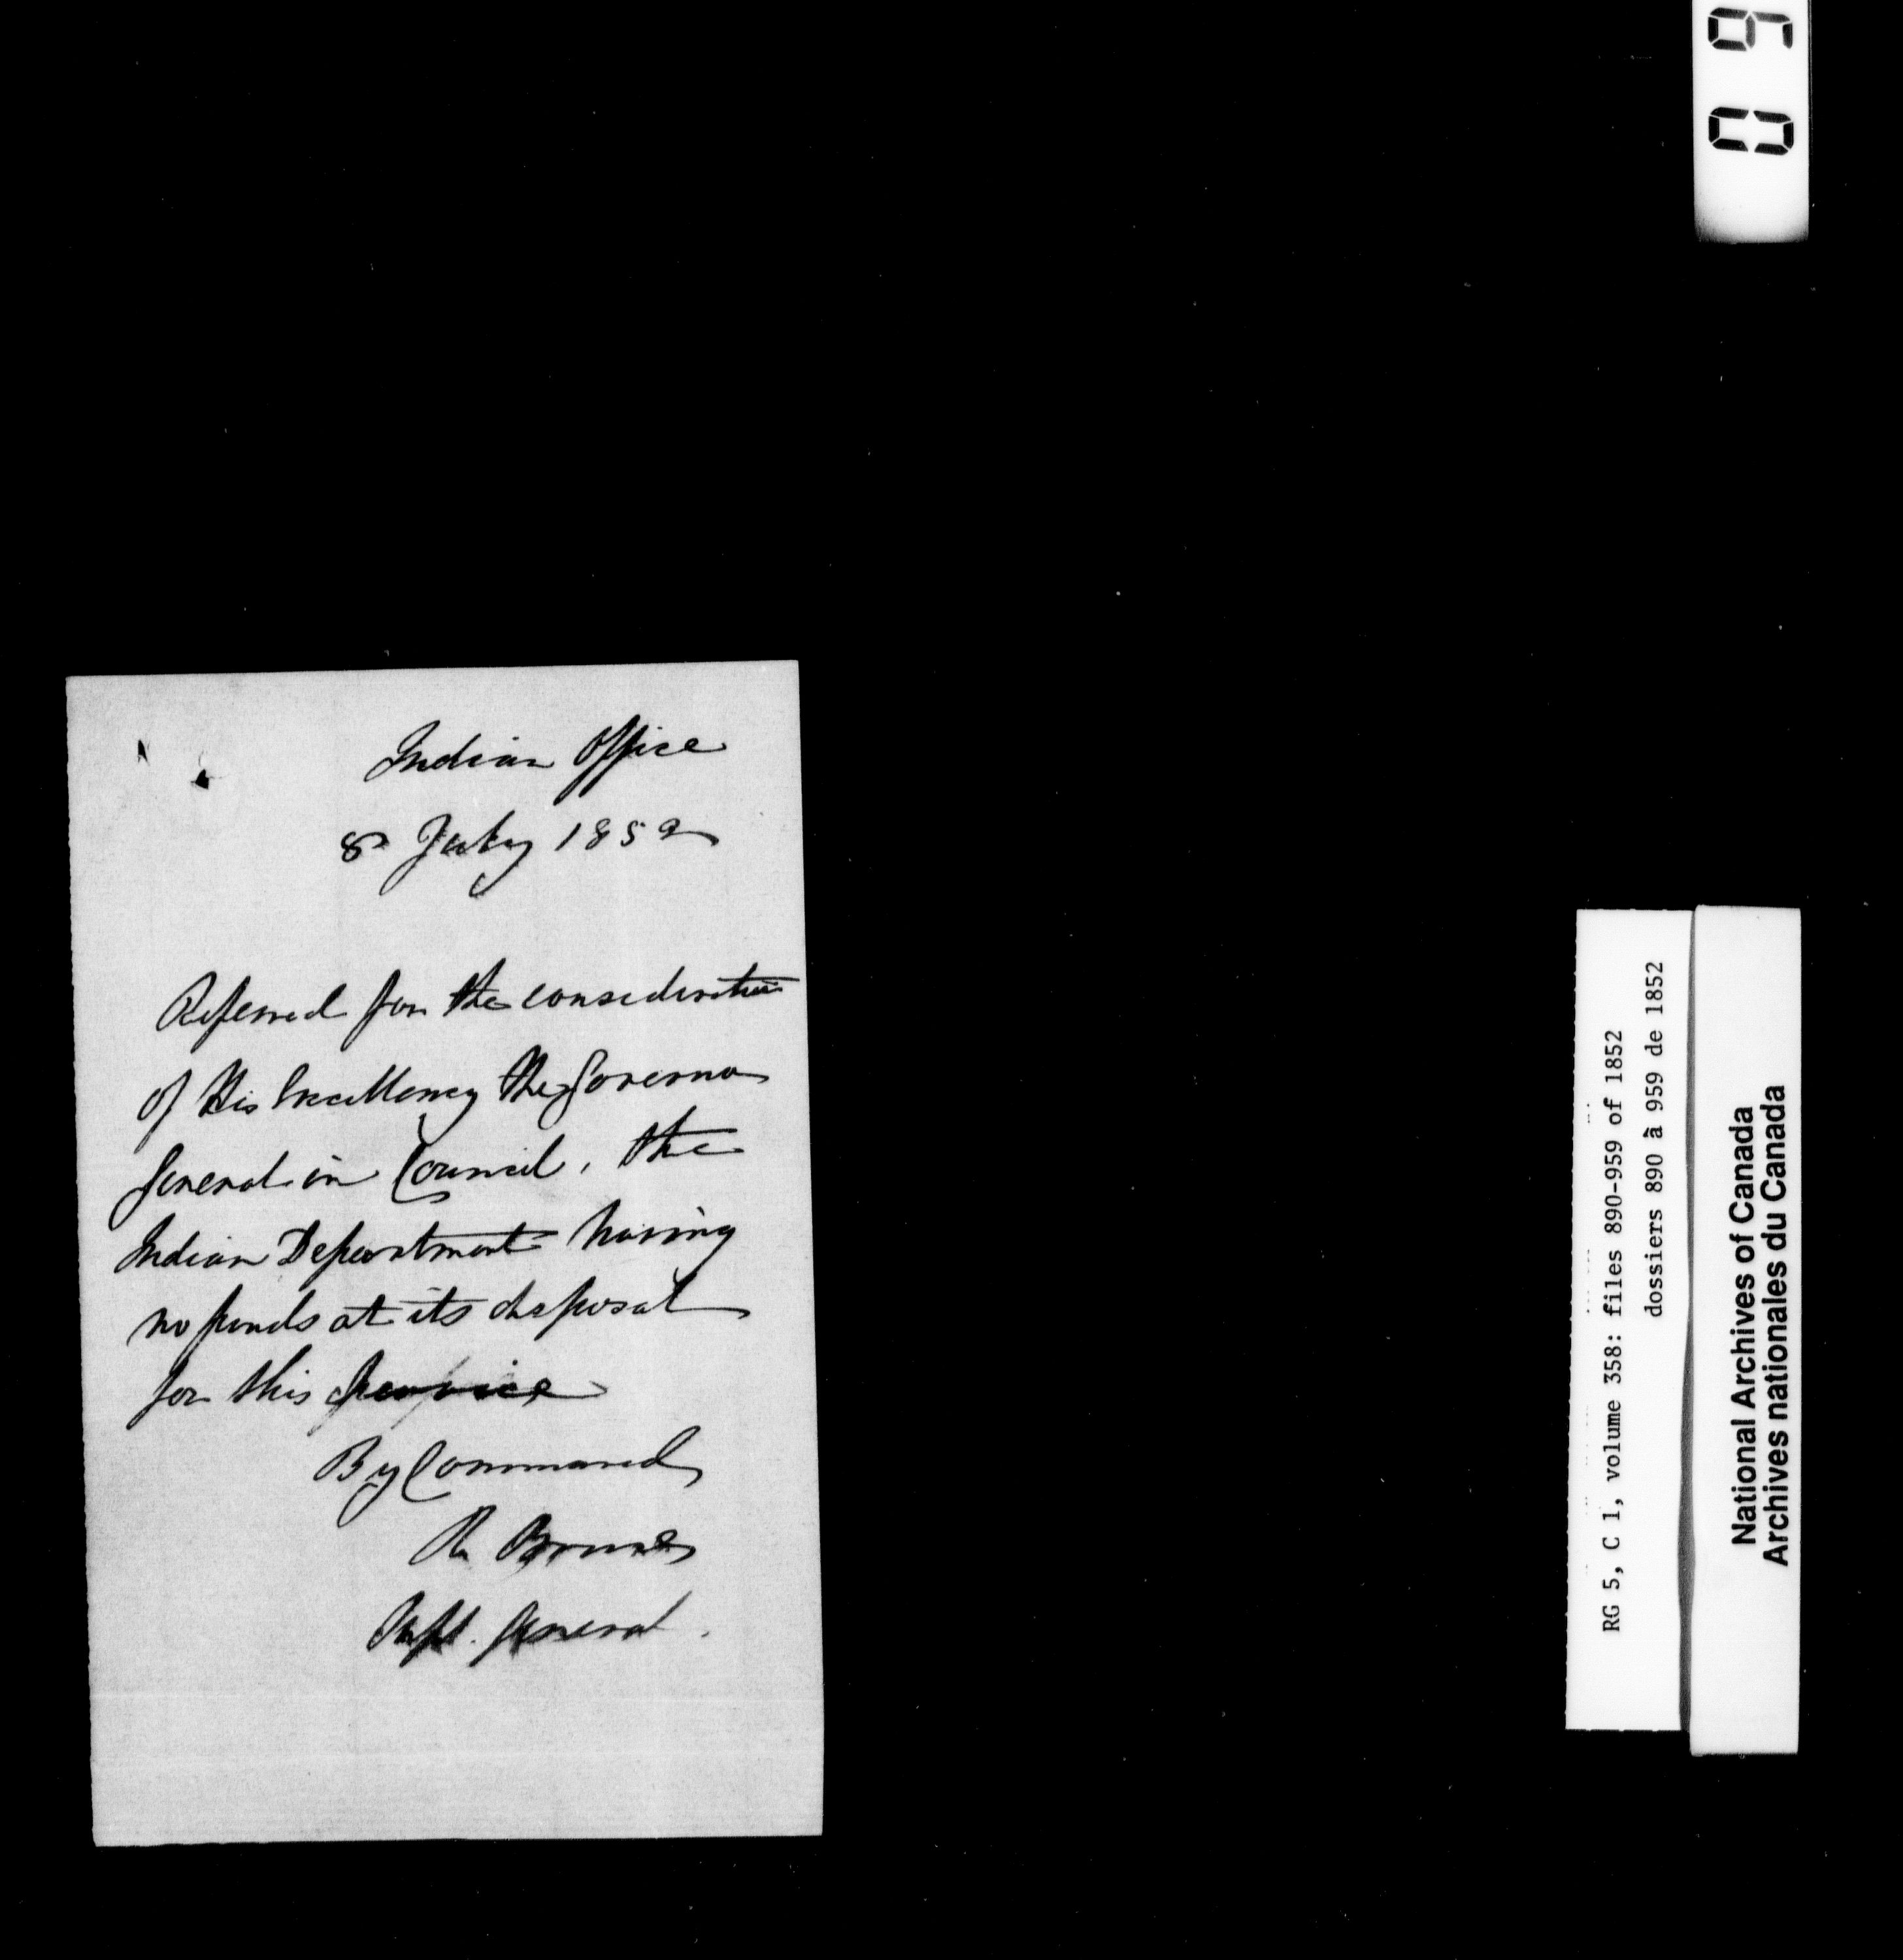 Indian Office
8 July 1852
Referred for the consideration
of His Excellency the Governor
General in Council, the
Indian Department having
no funds at its disposal
for this service
By Command
R. Bruce
Supt. General.
RG 5, C 1, volume 358: files 890-959 of 1852
dossiers 890 à 959 de 1852
National Archives of Canada
Archives nationales du Canada